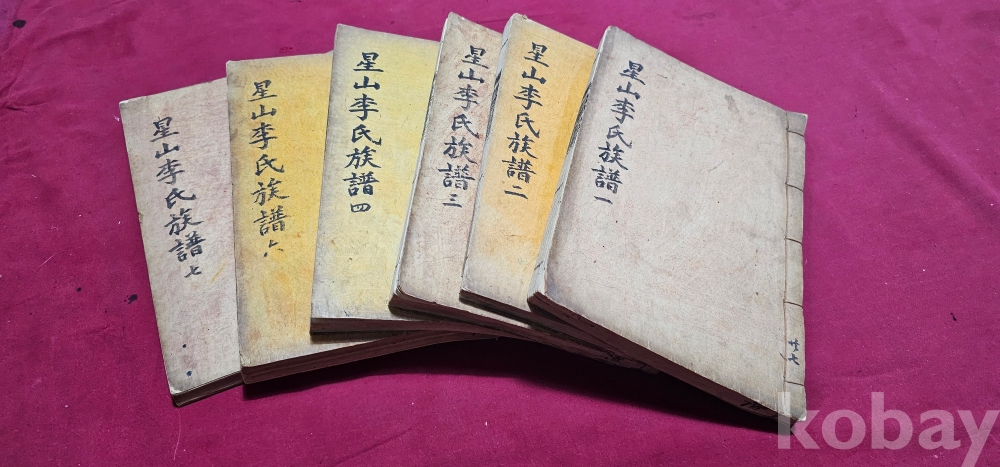 星山李氏族譜 一
星山李氏族譜 二
星山李氏族譜 三
星山李氏族譜 四
星山李氏族譜 六
星山李氏族譜 七
卄七
kobay